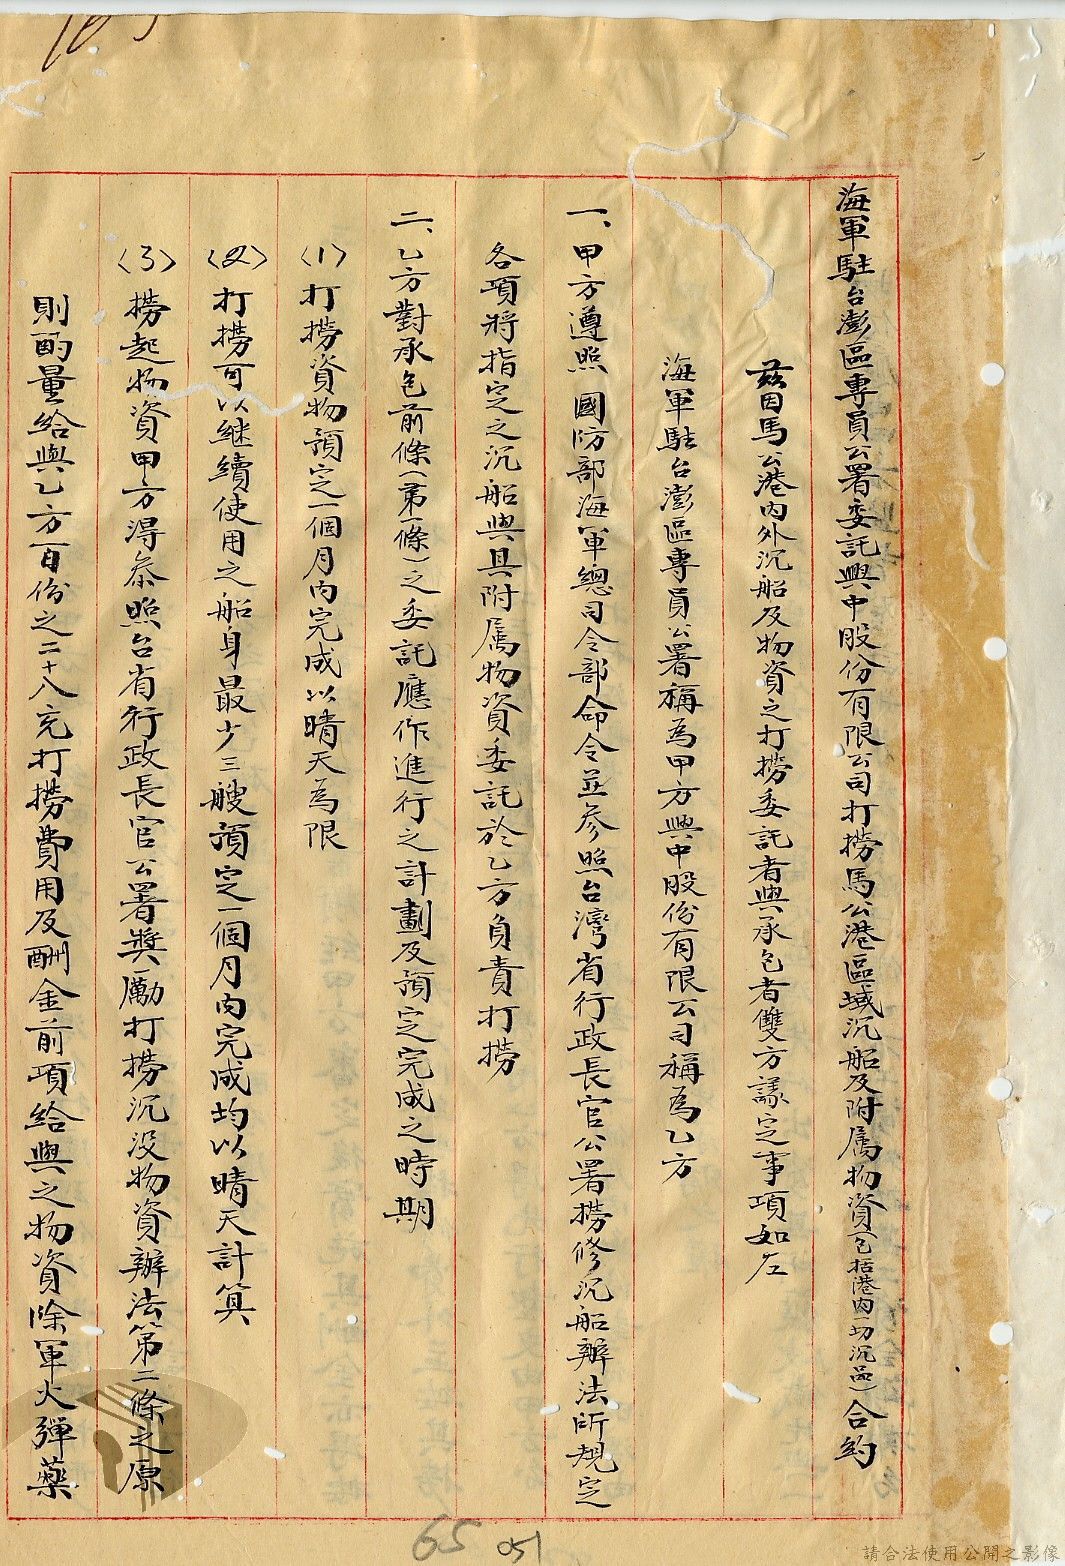 海軍駐台澎區專員公署委託興中股份有限公司打撈馬公港區域沉船及附屬物資(包括港內一切沉品)合約
茲因馬公港內外沉船及物資之打撈委託者與承包者雙方議定事項如左
海軍駐台澎區專員公署稱為甲方興中股份有限公司稱為乙方
一、甲方遵照 國防部海軍總司令部命令並參照台灣省行政長官公署撈修沉船辦法所規定
各項將指定之沉船與其附屬物資委託於乙方負責打撈
二、乙方對承包前條(第一條)之委託應作進行之計劃及預定完成之時期
〈1〉打撈資物預定一個月內完成以晴天為限
〈2〉打撈可以继續使用之船身最少三艘預定一個月內完成均以晴天計算
〈3〉撈起物資甲方得叅照台省行政長官公署獎勵打撈沉没物資辦法第二條之原
則酌量給與乙方百份之二十八充打撈費用及酬金前項給與之物資除軍火彈藥
65 051
請合法使用公開之影像